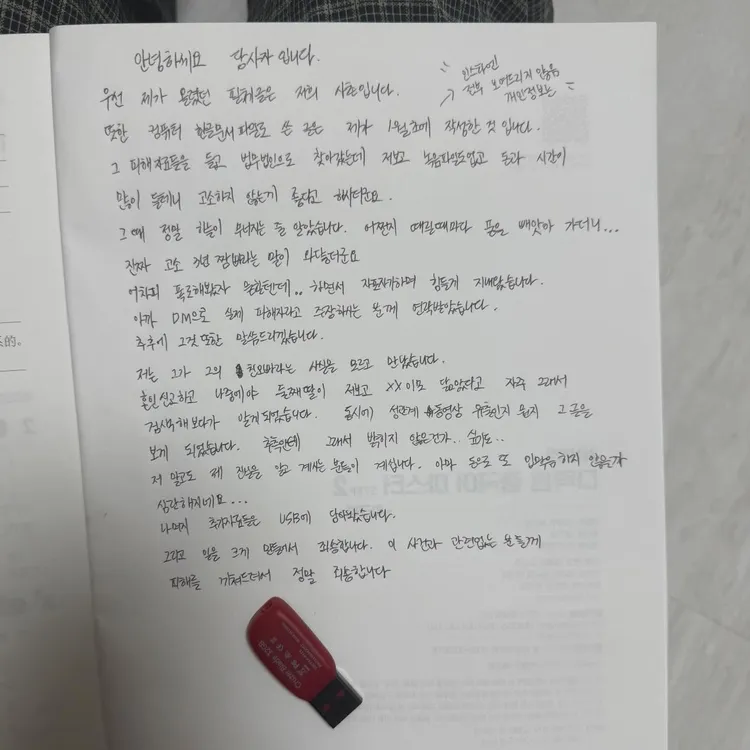 안녕하세요 당사자 입니다.
우선 제가 올렸던 판춰글은 저희 사촌입니다.
인스타엔
전부 보여드리지 않음
개인정보는
또한 컴퓨터 한글문서 파일로 쓴 글은 제가 1월초에 작성한 것 입니다.
그 피해 자료들을 들고 법무법인으로 찾아갔는데 저보고 녹음파일도없고 돈과 시간이
많이 들테니 고소하지 않는게 좋다고 하시더군요.
그때 정말 하늘이 무너지는 줄 알았습니다. 어쩐지 때릴때마다 폰을 빼앗아 가더니...
진짜 고소 3년 짬바라는 말이 와닿더군요
어차피 폭로해봤자 일텐데.. 하면서 자포자기하며 힘들게 지내왔습니다.
아까 DM으로 실제 피해자라고 주장하시는 분께 연락받았습니다.
추후에 그것 또한 말씀드리겠습니다.
저는 그가 그의 친오빠라는 사실을 모르고 만났습니다.
혼인신고하고 나중에야 둘째딸이 저보고 XX이모 닮았다고 자주 그래서
검색해보다가 알게되었습니다. 동시에 성관계 동영상 유출인지 뭔지 그 글을
보게 되었습니다. 그래서 밝히지 않은건가.. 싶기도..
저 말고도 제 진실을 알고 계시는 분들이 계십니다. 아마 돈으로 또 입막음 하지 않을까
심란해지네요...
나머지 추가자료들은 USB에 담아왔습니다.
그리고 일을 크게 만들어서 죄송합니다. 이 사건과 관련없는 분들께
피해를 끼쳐드려서 정말 죄송합니다
SanDisk
Cruzer Blade
系的。